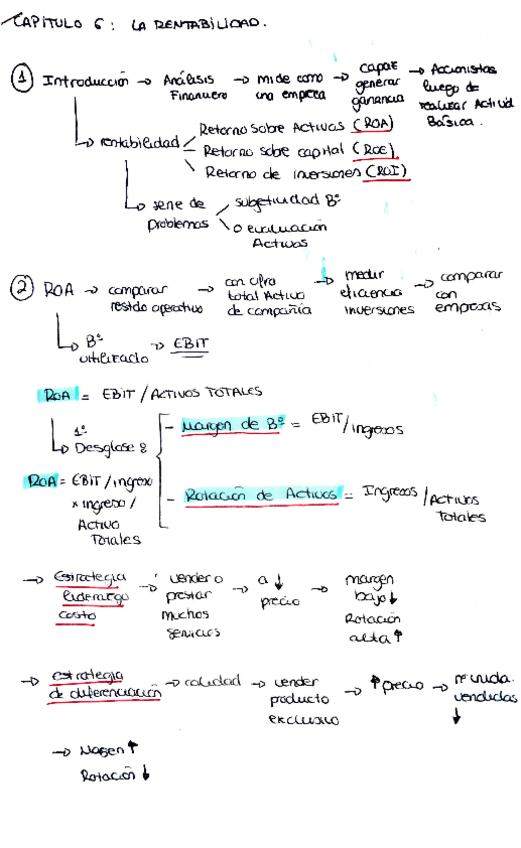 CAPITULO 6: LA RENTABILIDAD.
① Introducción → Análisis Financiero → mide como una empresa → capaz generar ganancia → Accionistas luego de realizar Activid Básica.
↳ rentabilidad
Retorno sobre Activos (ROA)
Retorno sobre capital (ROE)
Retorno de inversiones (ROI)
↳ serie de Problemas
subjetividad Bº
o evaluación Activos
② ROA → comparar restdo operativo → con cifra total Activo de compañía → medir eficiencia inversiones → comparar con empresas
↳ Bº utilizado → EBIT
ROA = EBIT / ACTIVOS TOTALES
↳ 1º Desglose
- Margen de Bº = EBIT / ingresos
- Rotación de Activos = Ingresos / Activos Totales
ROA = EBIT / ingreso
x ingreso /
Activo
Totales
→ Estrategia liderazgo costo → vender o prestar muchos servicios → a ↓ precio → margen bajo ↓ Rotación alta ↑
→ estrategia de diferenciación → calidad → vender producto exclusivo → ↑ precio → nº unida. vendidas ↓
→ Margen ↑
Rotación ↓